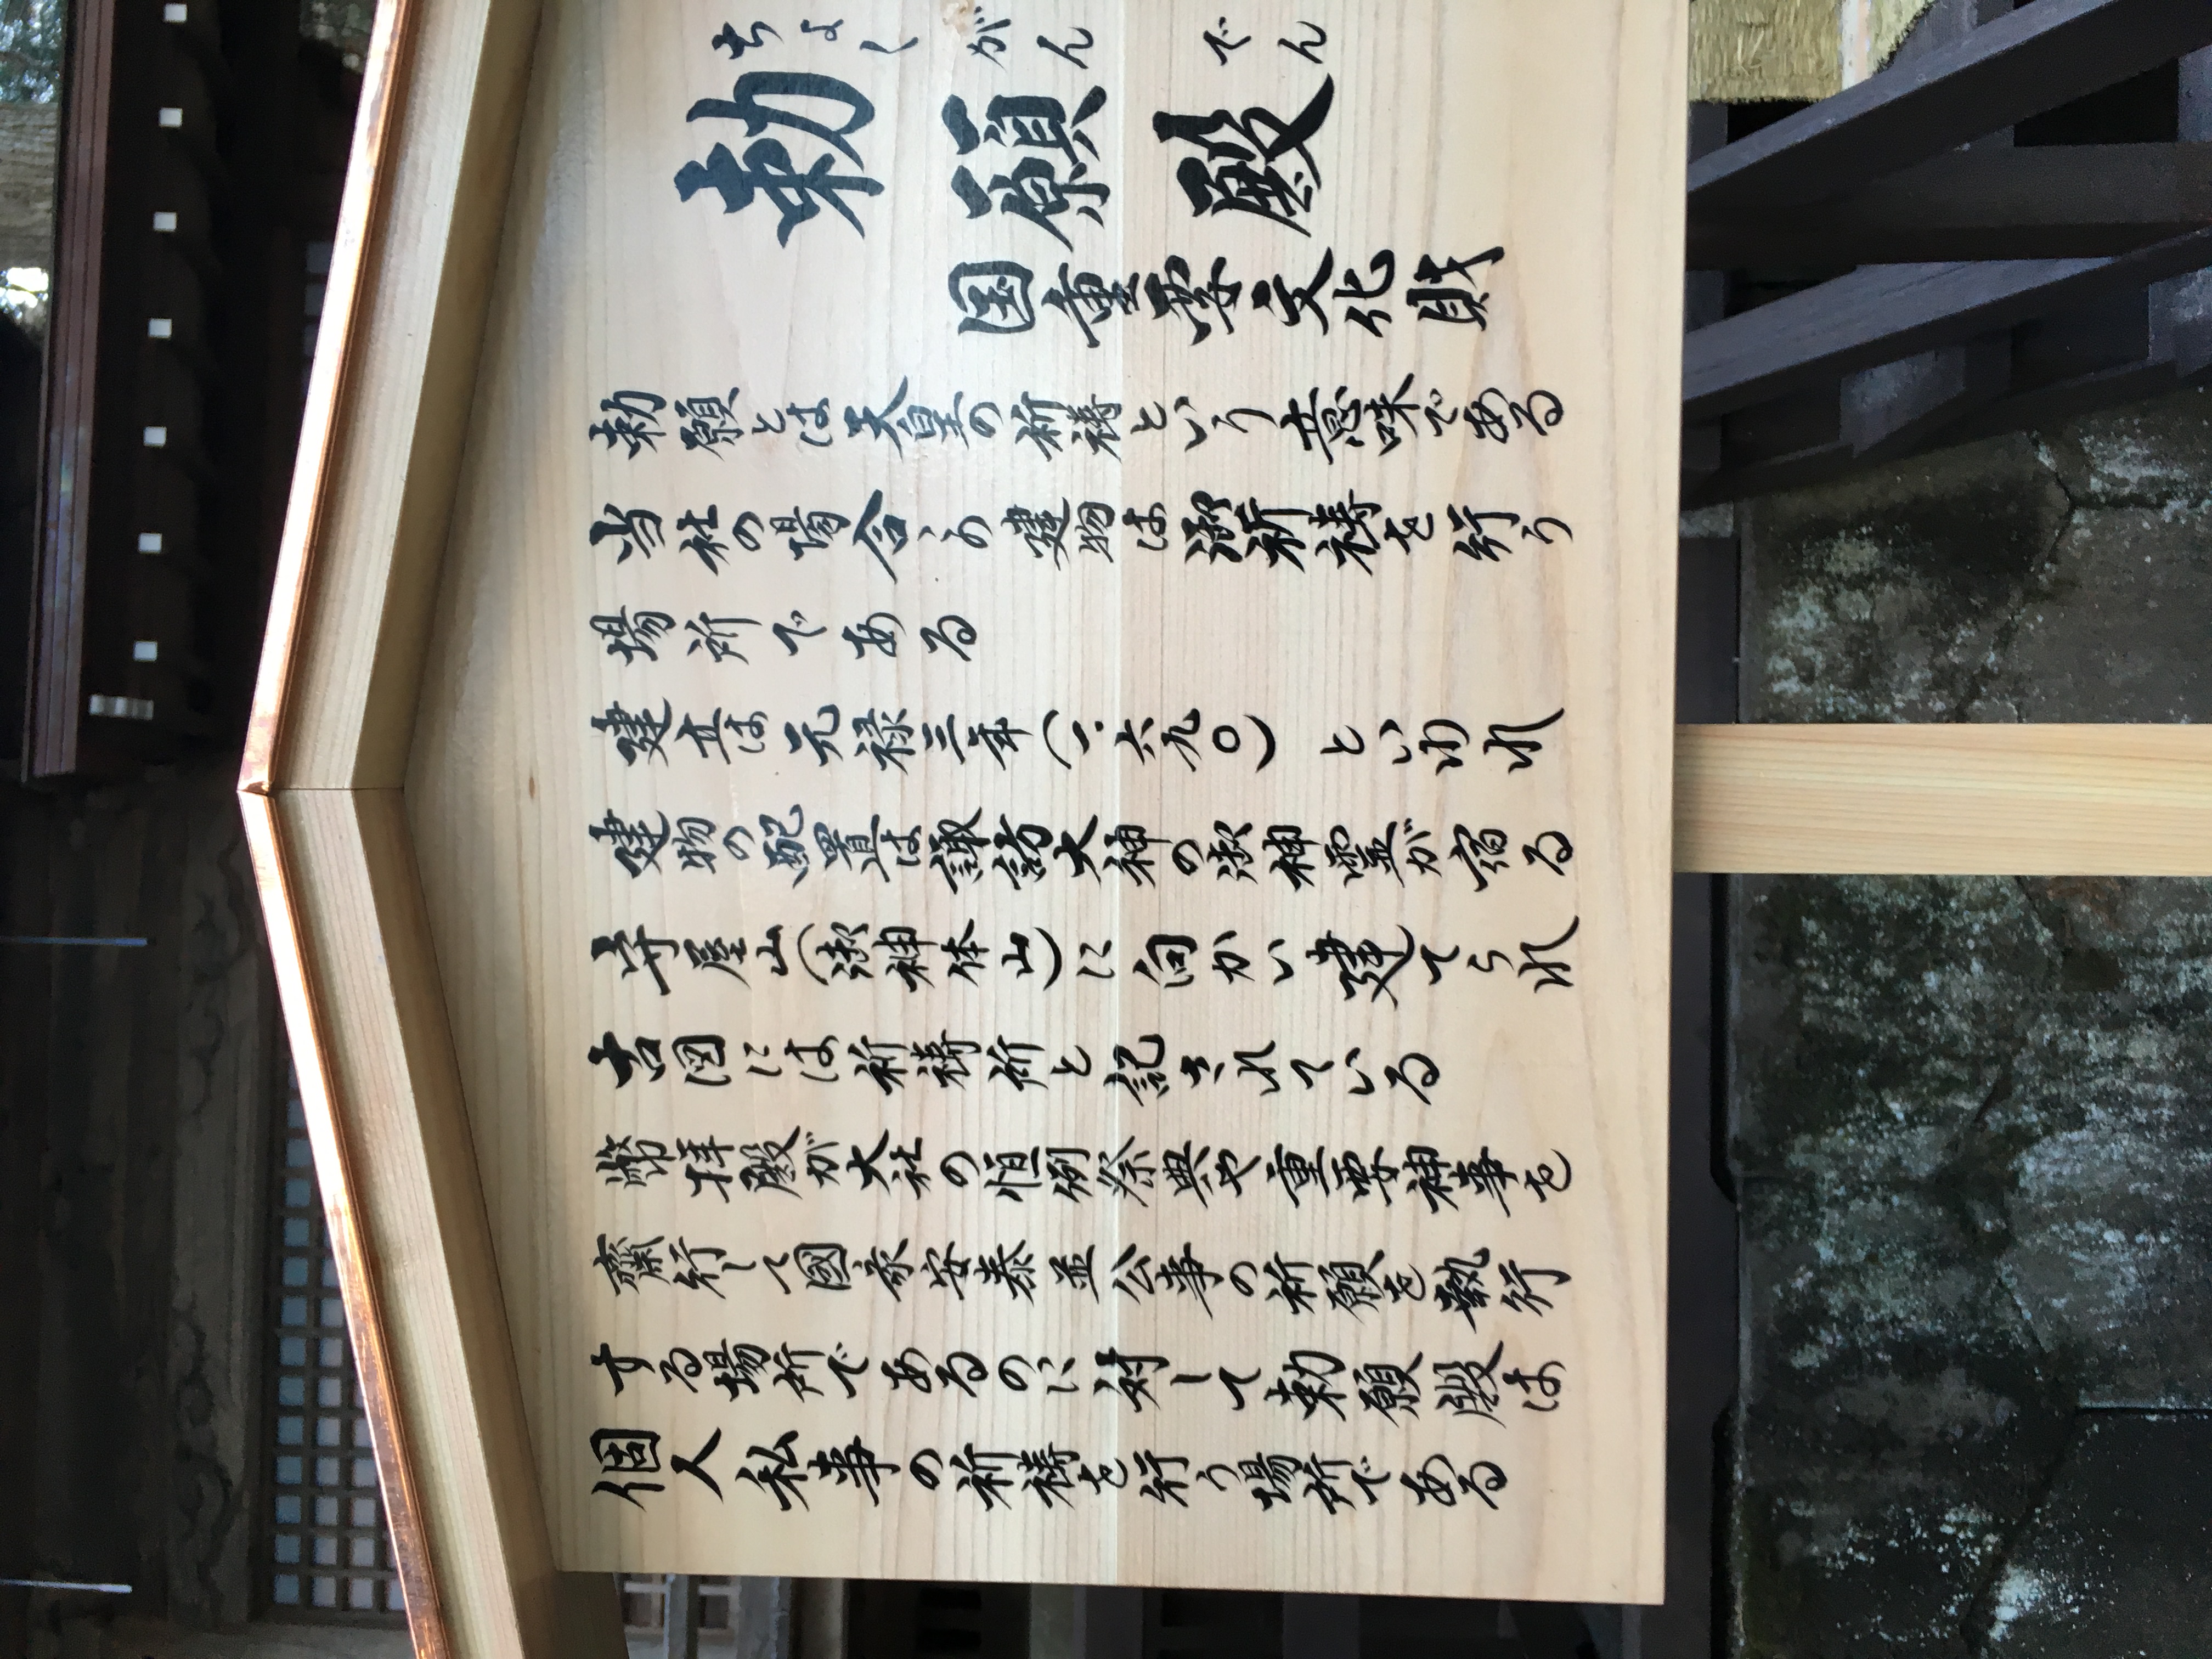 ちょくがんでん
勅願殿
国重要文化財
勅願とは天皇の祈祷という意味である
当社の場合、この建物は御祈祷を行う
場所である
建立は元禄三年(一六九〇)といわれ
建物の配置は諏訪大神の御神霊が宿る
守屋山(御神体山)に向かい建てられ
古図には祈祷所と記されている
幣拝殿が大社の恒例祭典や重要神事を
齋行して國家安泰並公事の祈願を執行
する場所であるのに対して勅願殿は
個人私事の祈祷を行う場所である